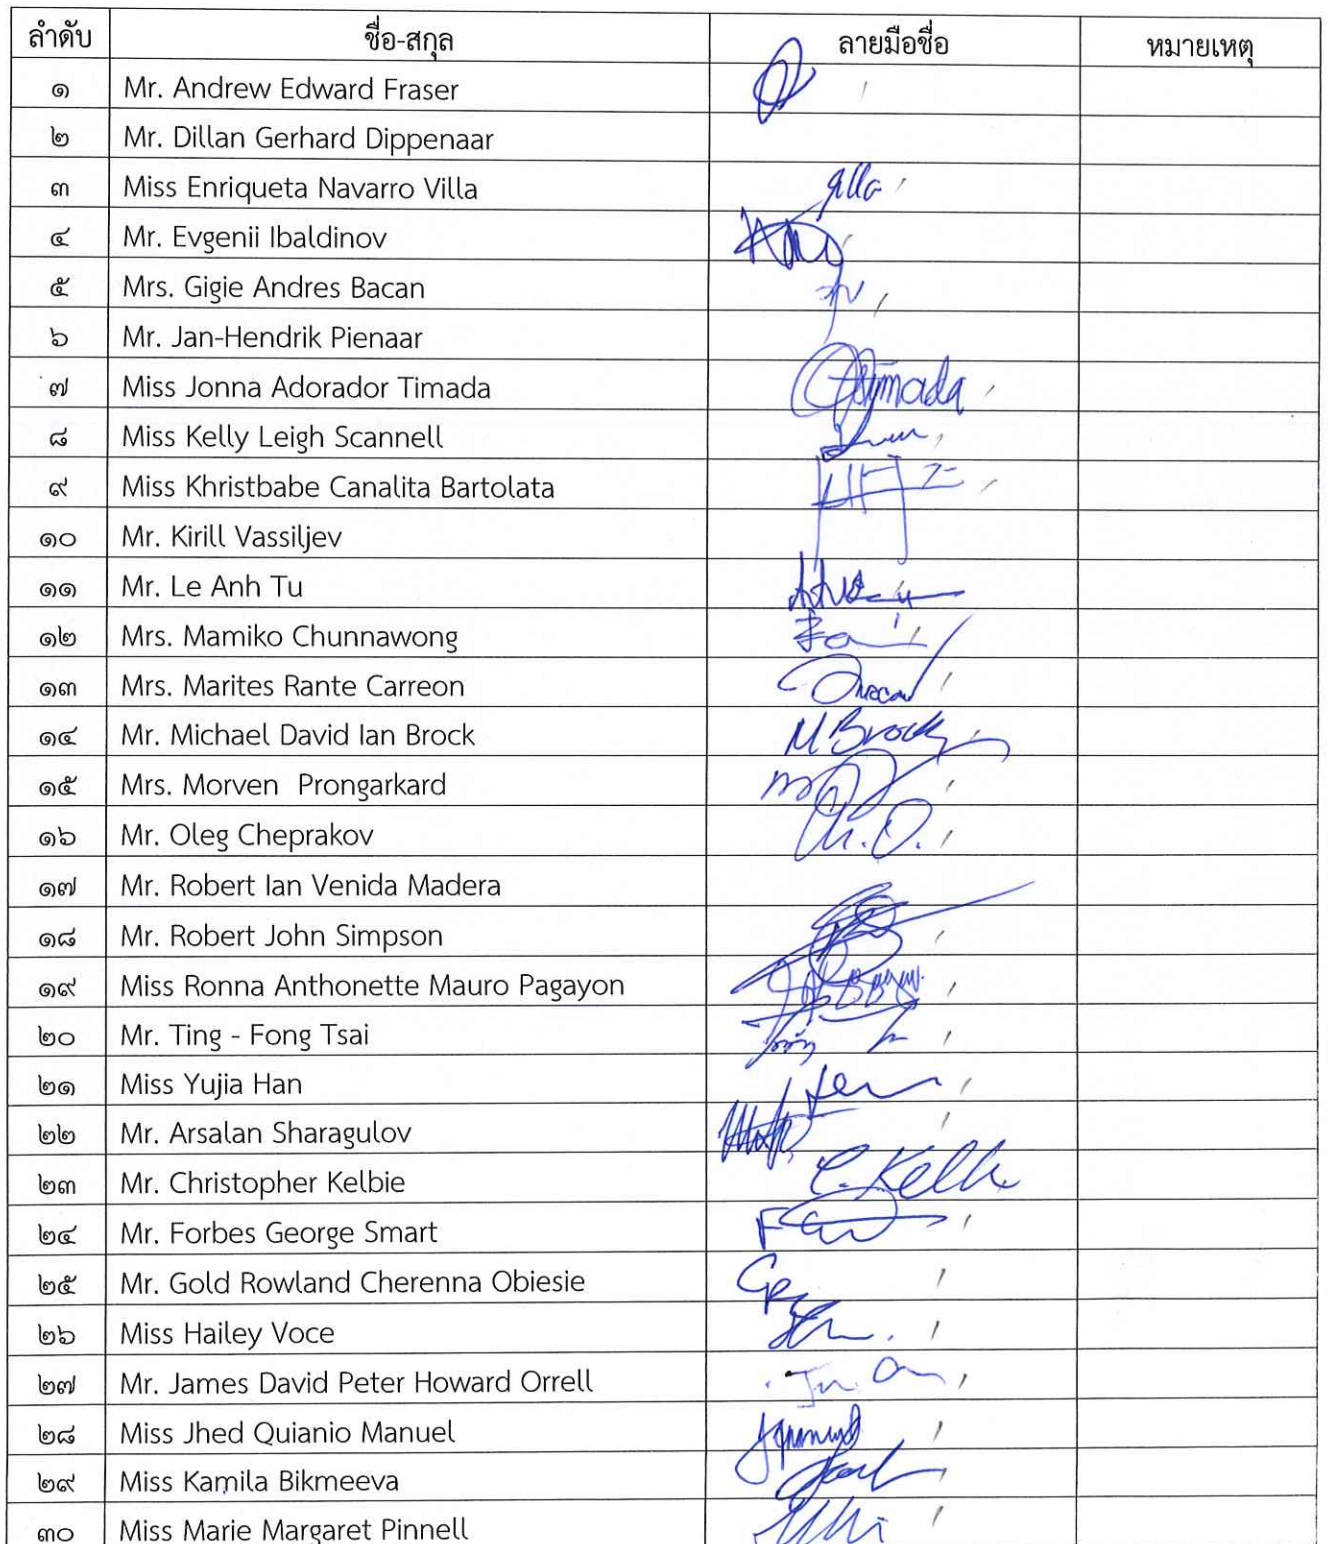 ลำดับ ชื่อ-สกุล ลายมือชื่อ หมายเหตุ
๑ Mr. Andrew Edward Fraser
๒ Mr. Dillan Gerhard Dippenaar
๓ Miss Enriqueta Navarro Villa
๔ Mr. Evgenii Ibaldinov
๕ Mrs. Gigie Andres Bacan
๖ Mr. Jan-Hendrik Pienaar
๗ Miss Jonna Adorador Timada
๘ Miss Kelly Leigh Scannell
๙ Miss Khristbabe Canalita Bartolata
๑๐ Mr. Kirill Vassiljev
๑๑ Mr. Le Anh Tu
๑๒ Mrs. Mamiko Chunnawong
๑๓ Mrs. Marites Rante Carreon
๑๔ Mr. Michael David Ian Brock M Brock
๑๕ Mrs. Morven Prongarkard
๑๖ Mr. Oleg Cheprakov
๑๗ Mr. Robert Ian Venida Madera
๑๘ Mr. Robert John Simpson
๑๙ Miss Ronna Anthonette Mauro Pagayon
๒๐ Mr. Ting - Fong Tsai
๒๑ Miss Yujia Han
๒๒ Mr. Arsalan Sharagulov
๒๓ Mr. Christopher Kelbie
๒๔ Mr. Forbes George Smart
๒๕ Mr. Gold Rowland Cherenna Obiesie
๒๖ Miss Hailey Voce
๒๗ Mr. James David Peter Howard Orrell
๒๘ Miss Jhed Quianio Manuel
๒๙ Miss Kamila Bikmeeva
๓๐ Miss Marie Margaret Pinnell